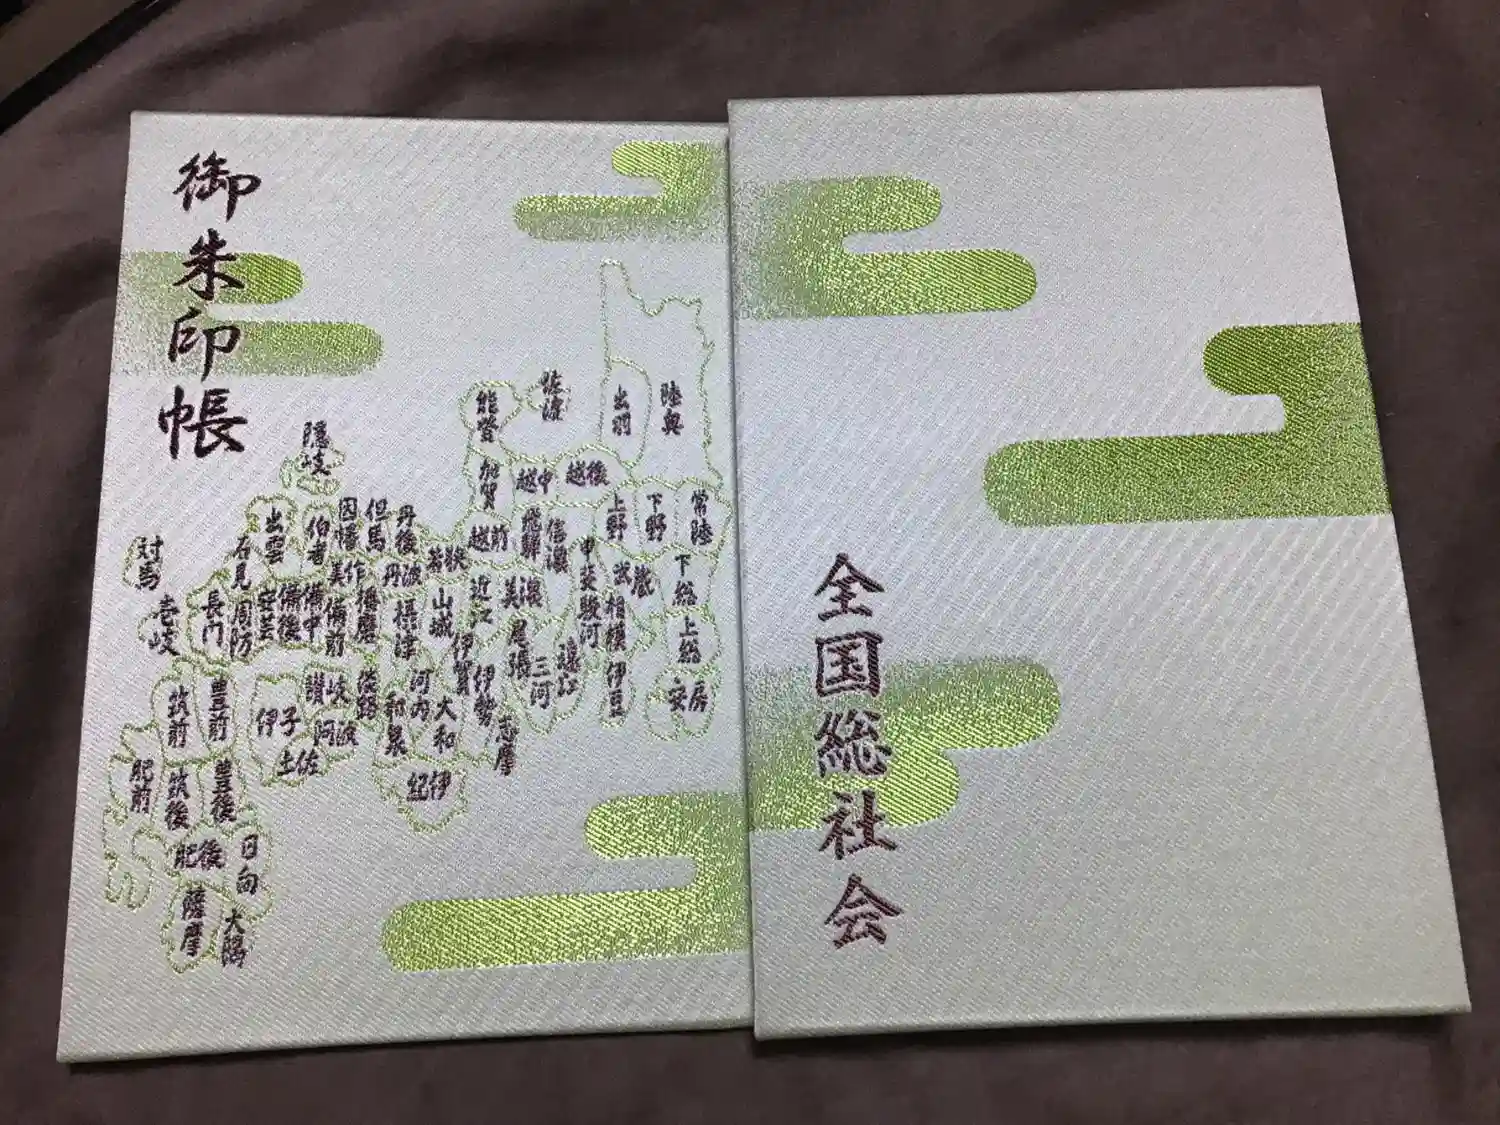 御朱印帳
陸奥
出羽
佐渡
能登
加賀
越中
越後
上野
下野
常陸
隠岐
出雲
伯耆
因幡
但馬
丹後
若狭
越前
飛騨
信濃
甲斐
武蔵
下総
対馬
壱岐
石見
長門
周防
安芸
備後
備中
備前
美作
播磨
丹波
摂津
山城
近江
美濃
尾張
三河
遠江
駿河
相模
伊豆
上総
安房
伊賀
伊勢
志摩
河内
大和
和泉
紀伊
淡路
讃岐
阿波
伊予
土佐
筑前
豊前
肥前
筑後
豊後
肥後
日向
薩摩
大隅
全国総社会